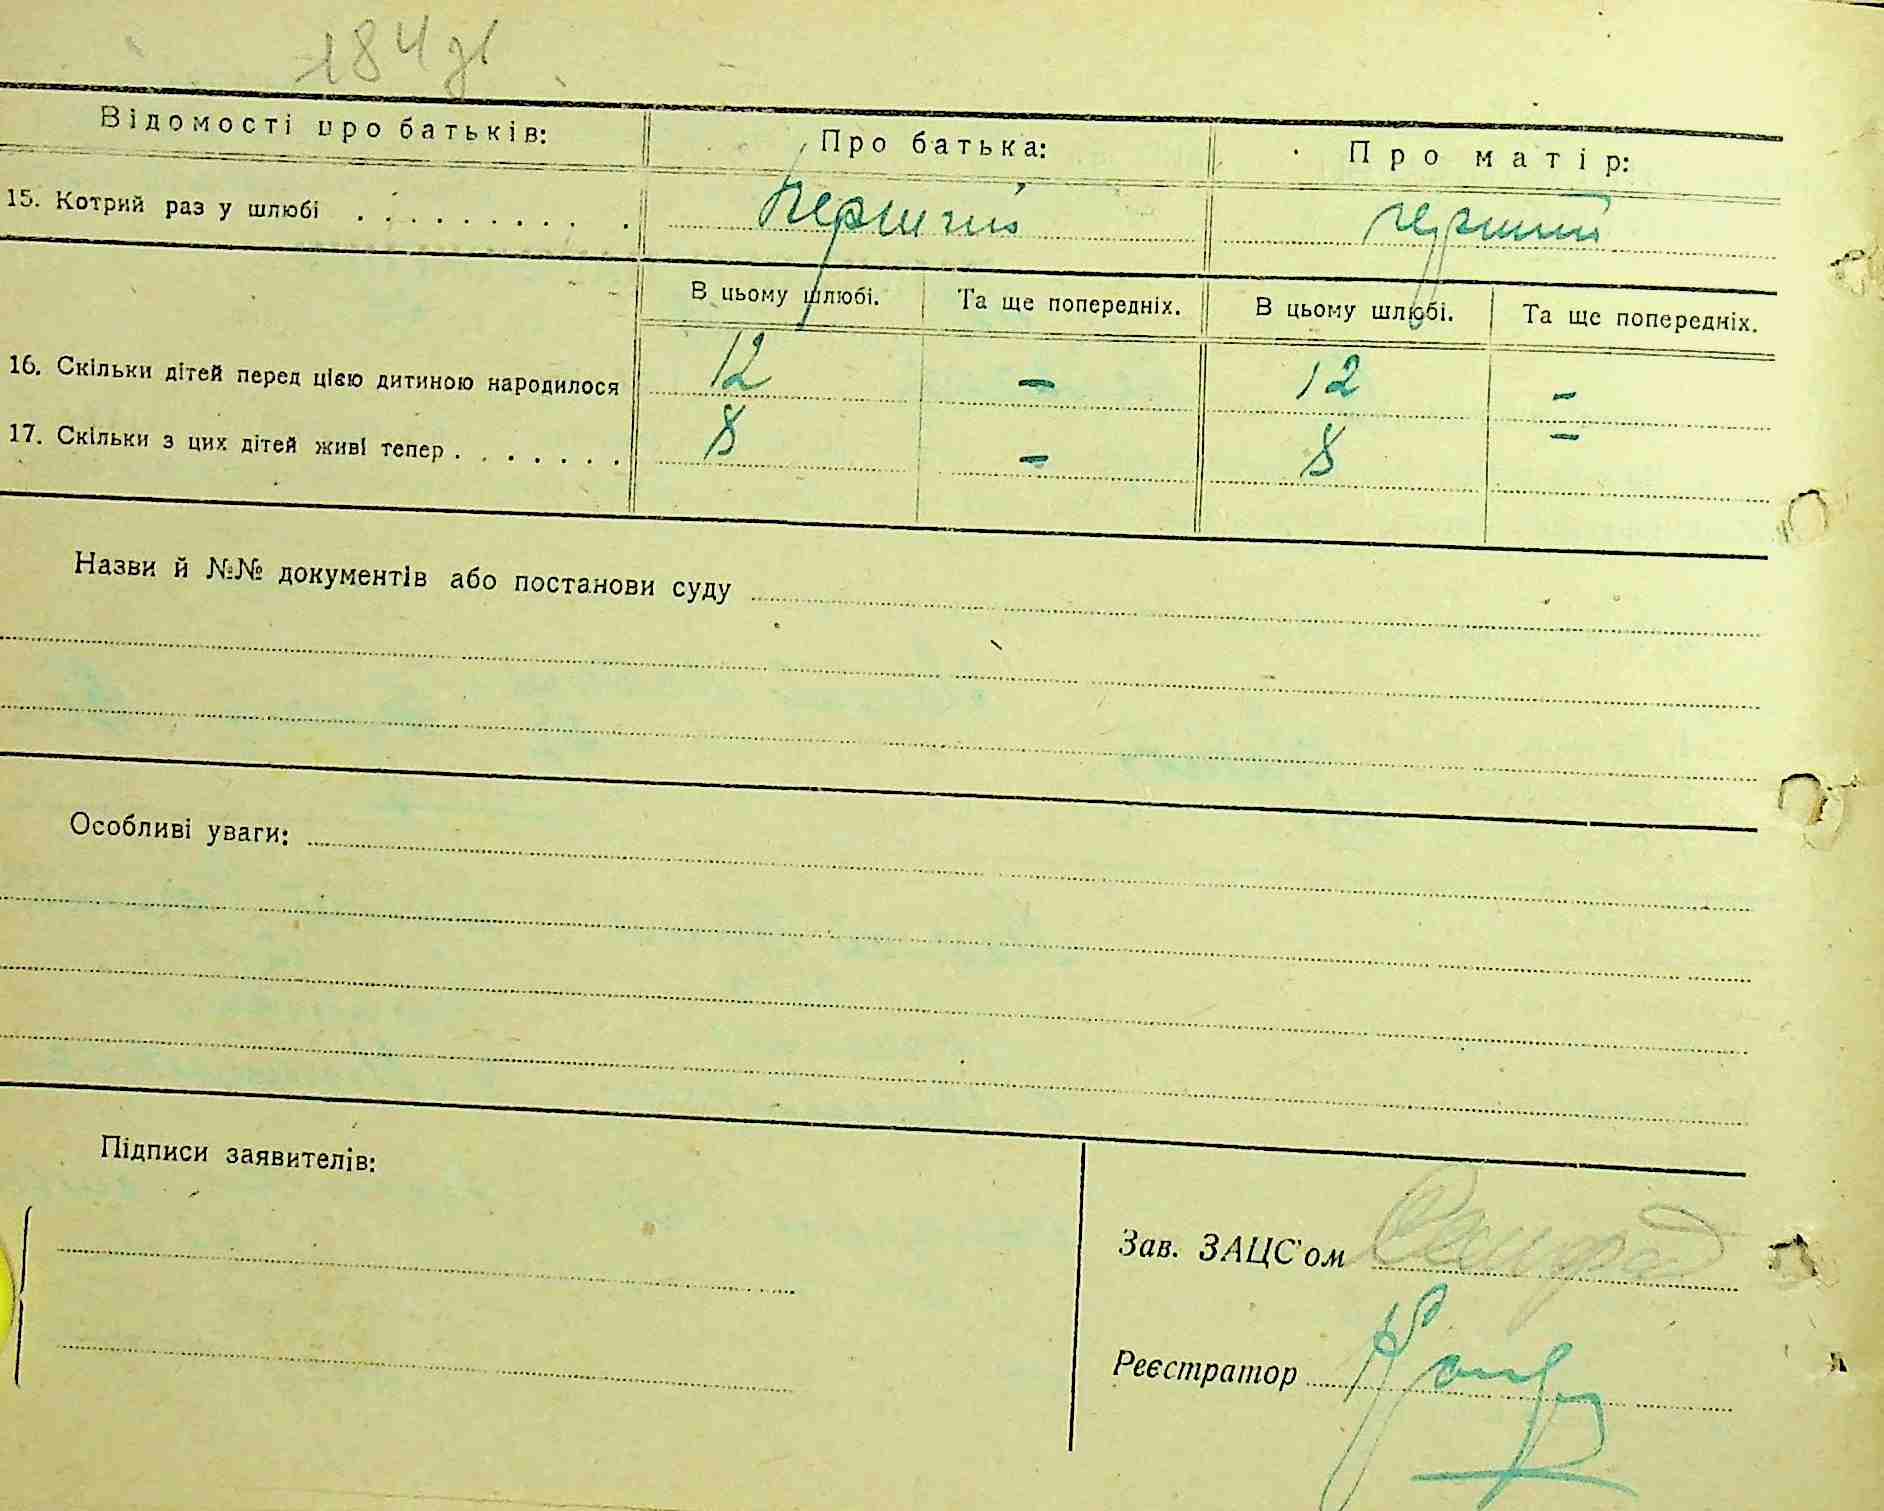 184
Відомості про батьків: Про батька: Про матір:
15. Котрий раз у шлюбі . . . . . . . . . . перший перший
В цьому шлюбі. Та ще попередніх. В цьому шлюбі. Та ще попередніх.
16. Скільки дітей перед цією дитиною народилося 12 – 12 –
17. Скільки з цих дітей живі тепер . . . . . . . 8 – 8 –
Назви й №№ документів або постанови суду
Особливі уваги:
Підписи заявителів:
Зав. ЗАЦС'ом
Реєстратор